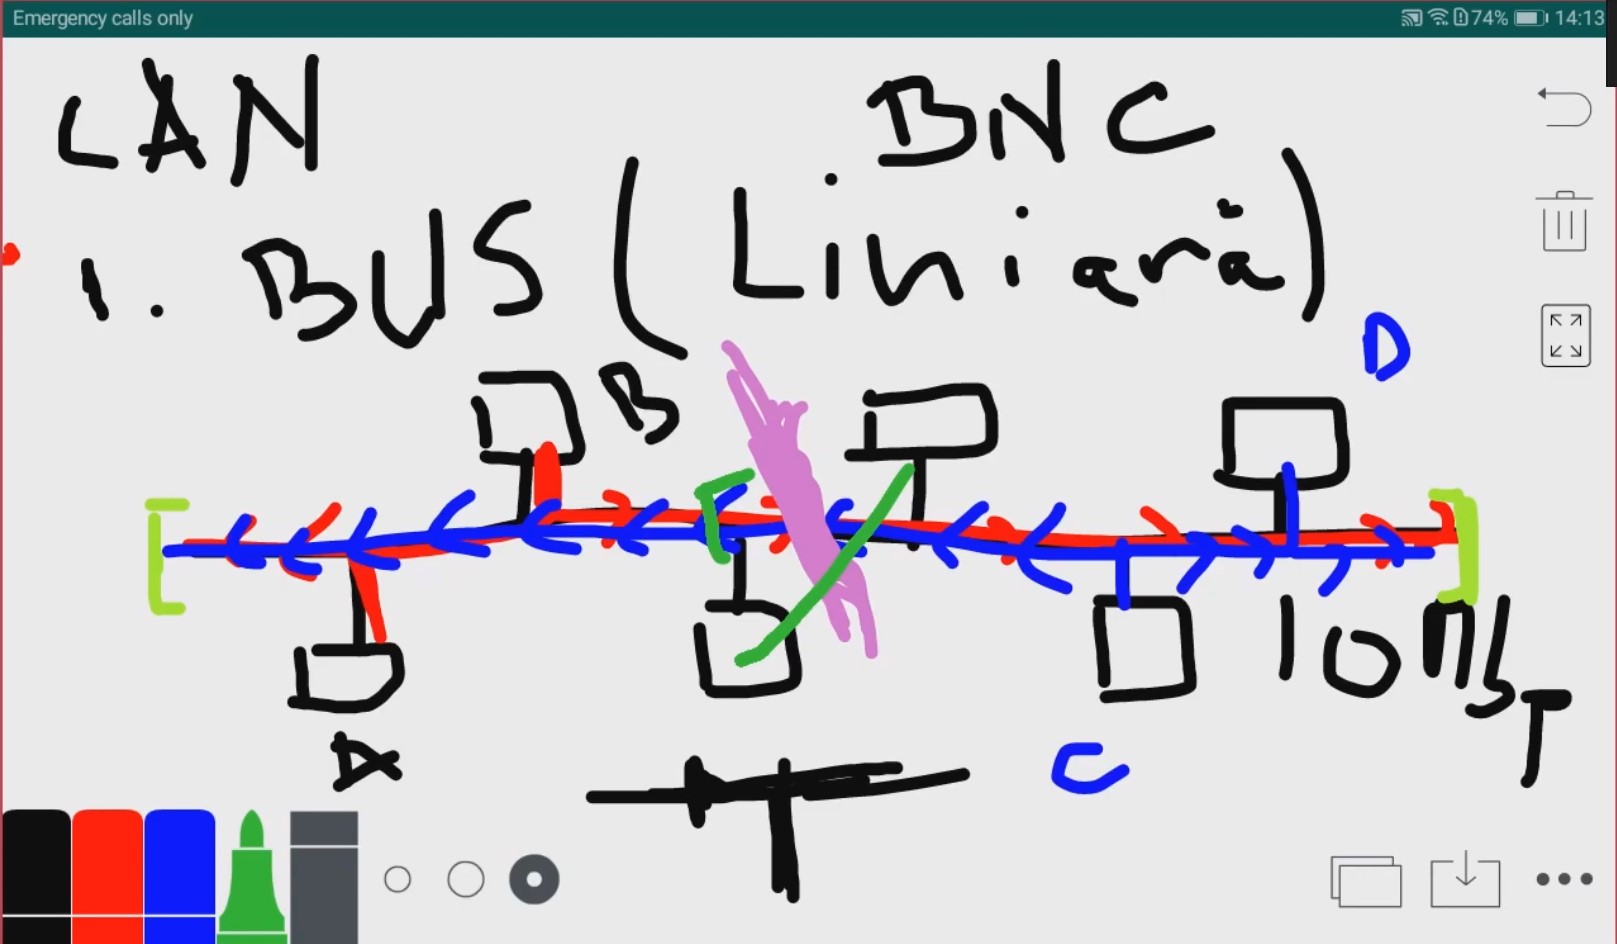 Emergency calls only 74% 14:13
LAN BNC
1. BUS (Liniară)
D
B
10 Mb
T
A
C
T